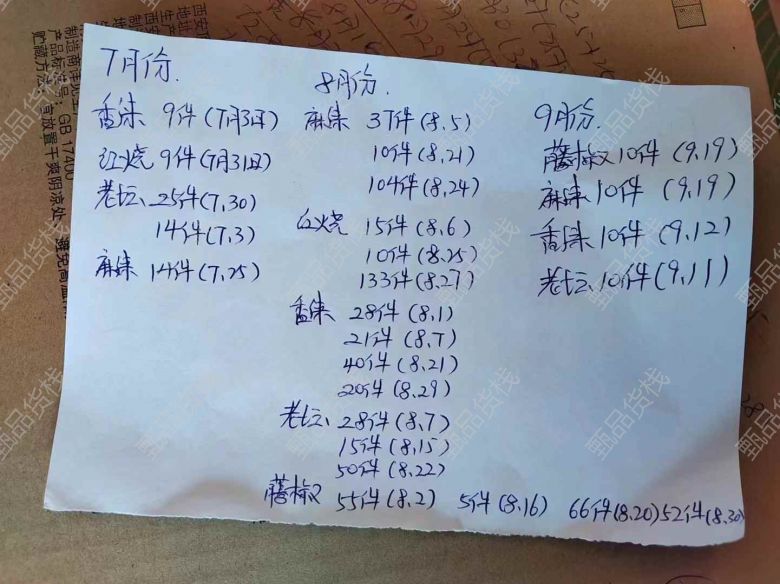 7月份.
香辣 9件(7月3日)
红烧 9件(7月31日)
老坛、25件(7.30)
14件(7.3)
麻辣 14件(7.25)
8月份.
麻辣 37件(8.5)
10件(8.21)
104件(8.24)
红烧 15件(8.6)
10件(8.25)
133件(8.27)
香辣 28件(8.1)
21件(8.7)
40件(8.21)
20件(8.29)
老坛、28件(8.7)
15件(8.15)
50件(8.22)
藤椒 55件(8.2) 5件(8.16) 66件(8.20) 52件(8.30)
9月份.
藤椒 10件(9.19)
麻辣 10件(9.19)
香辣 10件(9.12)
老坛、10件(9.11)
产品标准号: GB 17400
甄品货栈